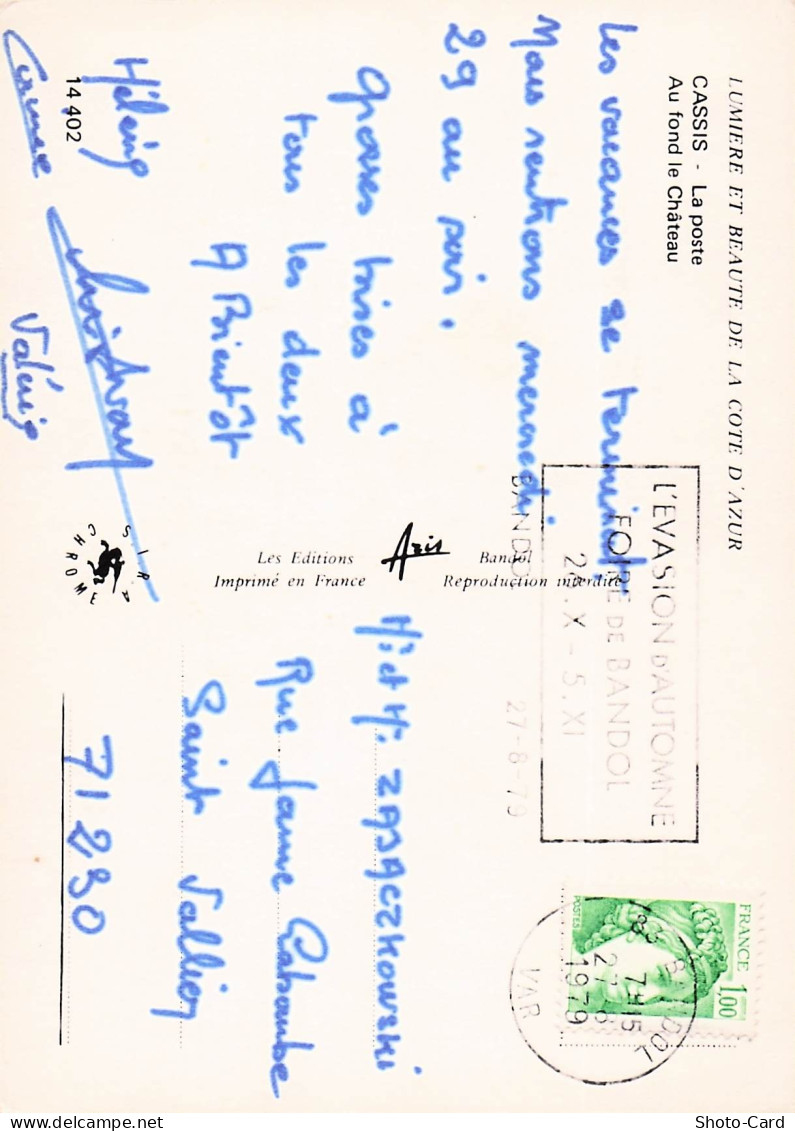 LUMIERE ET BEAUTE DE LA COTE D'AZUR
CASSIS - La poste
Au fond le Château
Les vacances se terminent.
Nous rentrons mercredi
29 au soir.
Grosses bises à
tous les deux
A Bientôt
Hélène
Valérie
14 402
S.I.R.
CHROME
Les Editions Azis Bandol
Imprimé en France Reproduction interdite
L'EVASION D'AUTOMNE
FOIRE DE BANDOL
X - 5. XI
BANDOL
27-8-79
FRANCE 1,00
POSTES
83 BANDOL
7H15
27-8
1979
VAR
ZAJACZKOWSKI
Rue Jeanne Labourbe
Saint Vallier
71 230
Shoto-Card